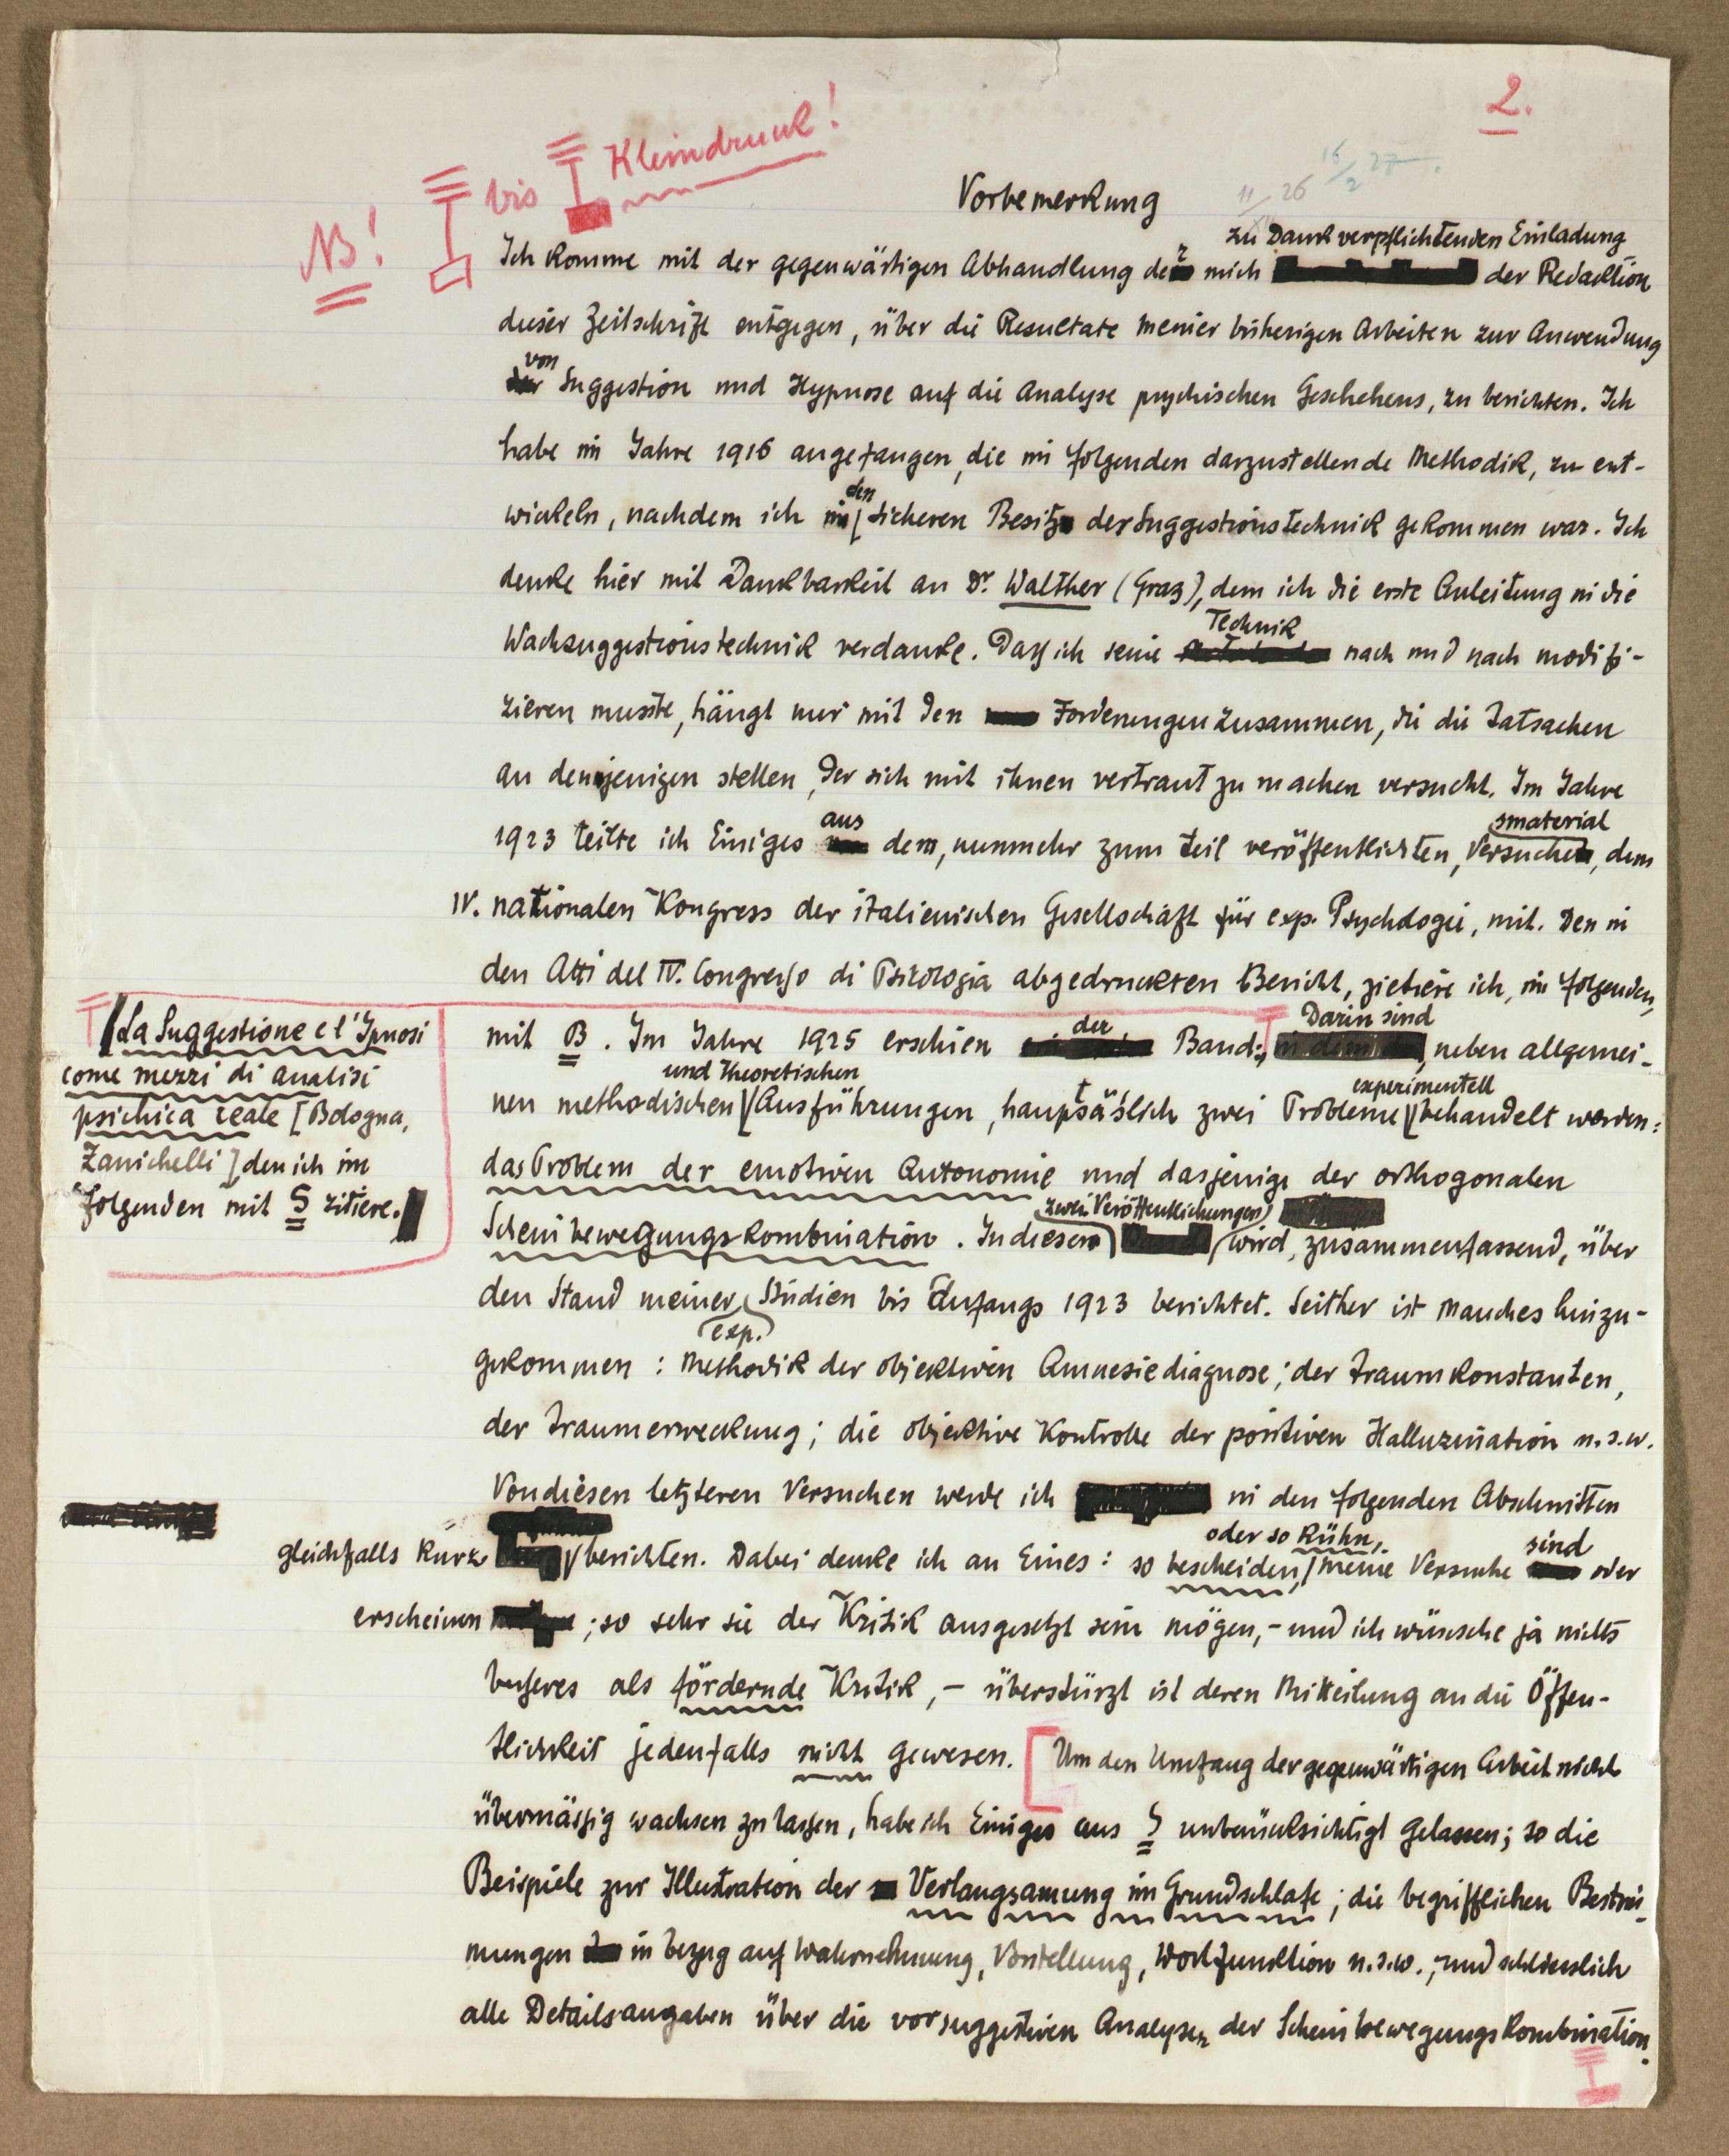 2.
Kleindruck!
bis
NB!
11/26 16/2 27.
Vorbemerkung
zu Dank verpflichtenden Einladung
Ich komme mit der gegenwärtigen Abhandlung der mich der Redaktion
dieser Zeitschrift entgegen, über die Resultate meiner bisherigen Arbeiten zur Anwendung
von
Suggestion und Hypnose auf die Analyse psychischen Geschehens, zu berichten. Ich
habe im Jahre 1916 angefangen, die im folgenden darzustellende Methodik, zu ent-
den
wickeln, nachdem ich in sicheren Besitz der Suggestionstechnik gekommen war. Ich
denke hier mit Dankbarkeit an Dr. Walther (Graz), dem ich die erste Anleitung in die
Technik
Wachsuggestionstechnik verdanke. Dass ich seine nach und nach modifi-
zieren musste, hängt nur mit den Forderungen zusammen, die die Tatsachen
an denjenigen stellen, der sich mit ihnen vertraut zu machen versucht. Im Jahre
aus smaterial
1923 teilte ich Einiges dem, nunmehr zum teil veröffentlichten, Versuch, dem
IV. nationalen Kongress der italienischen Gesellschaft für exp. Psychologie, mit. Den in
den Atti del IV. Congresso di Psicologia abgedruckten Bericht, zietiere ich, im folgenden,
der Darin sind
mit B. Im Jahre 1925 erschien Band: neben allgemei-
La Suggestione e l'Ipnosi
come mezzi di analisi
psichica reale [Bologna,
Zanichelli], den ich im
folgenden mit S zitiere.
und theoretischen experimentell
nen methodischen Ausführungen, hauptsäslich zwei Probleme behandelt werden:
das Problem der emotiven Autonomie und dasjenige der orthogonalen
zwei Veröffentlichungen
Scheinbewegungskombination. In diesen wird, zusammenfassend, über
den Stand meiner Studien bis Anfangs 1923 berichtet. Seither ist manches hinzu-
exp.
gekommen: Methodik der objektiven Amnesiediagnose; der Traumkonstanten,
der Traumerweckung; die objektive Kontrolle der positiven Halluzination u.s.w.
Von diesen letzteren Versuchen werde ich in den folgenden Abschnitten
oder so kühn, sind
gleichfalls kurz berichten. Dabei denke ich an Eines: so bescheiden meine Versuche oder
erscheinen; so sehr sie der Kritik ausgesetzt sein mögen, - und ich wünsche ja nichts
besseres als fördernde Kritik, - überstürzt ist deren Mitteilung an die Öffen-
tlichkeit jedenfalls nicht gewesen. [Um den Umfang der gegenwärtigen Arbeit nicht
übermässig wachsen zu lassen, habe ich Einiges aus S unberücksichtigt gelassen; so die
Beispiele zur Illustration der Verlangsamung im Grundschlafe; die begrifflichen Bestim-
mungen in bezug auf Wahrnehmung, Vorstellung, Wortfunktion u.s.w.; und schliesslich
alle Detailsangaben über die vorsuggestiven Analysen der Scheinbewegungskombination.